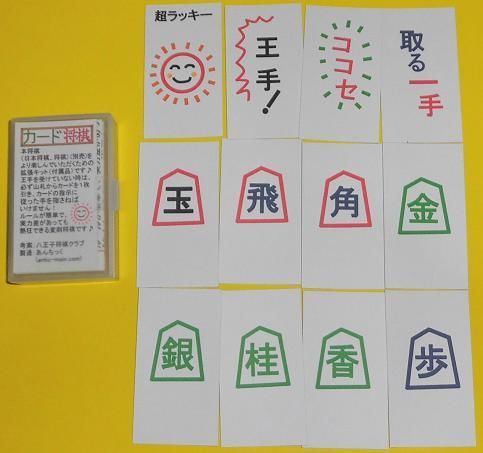 超ラッキー
王手!
ココセ
取る一手
カード将棋
本将棋
(日本将棋、将棋)(別売)を
より楽しんでいただくための
拡張キット(付属品)です♪
王手を受けていない時は、
必ず山札からカードを1枚
引き、カードの指示に
従った手を指さねば
いけません!
ルールが簡単で、
実力差があっても
熱狂できる変則将棋です♪
考案:八王子将棋クラブ
製造:あんちっく
玉
飛
角
金
銀
桂
香
歩